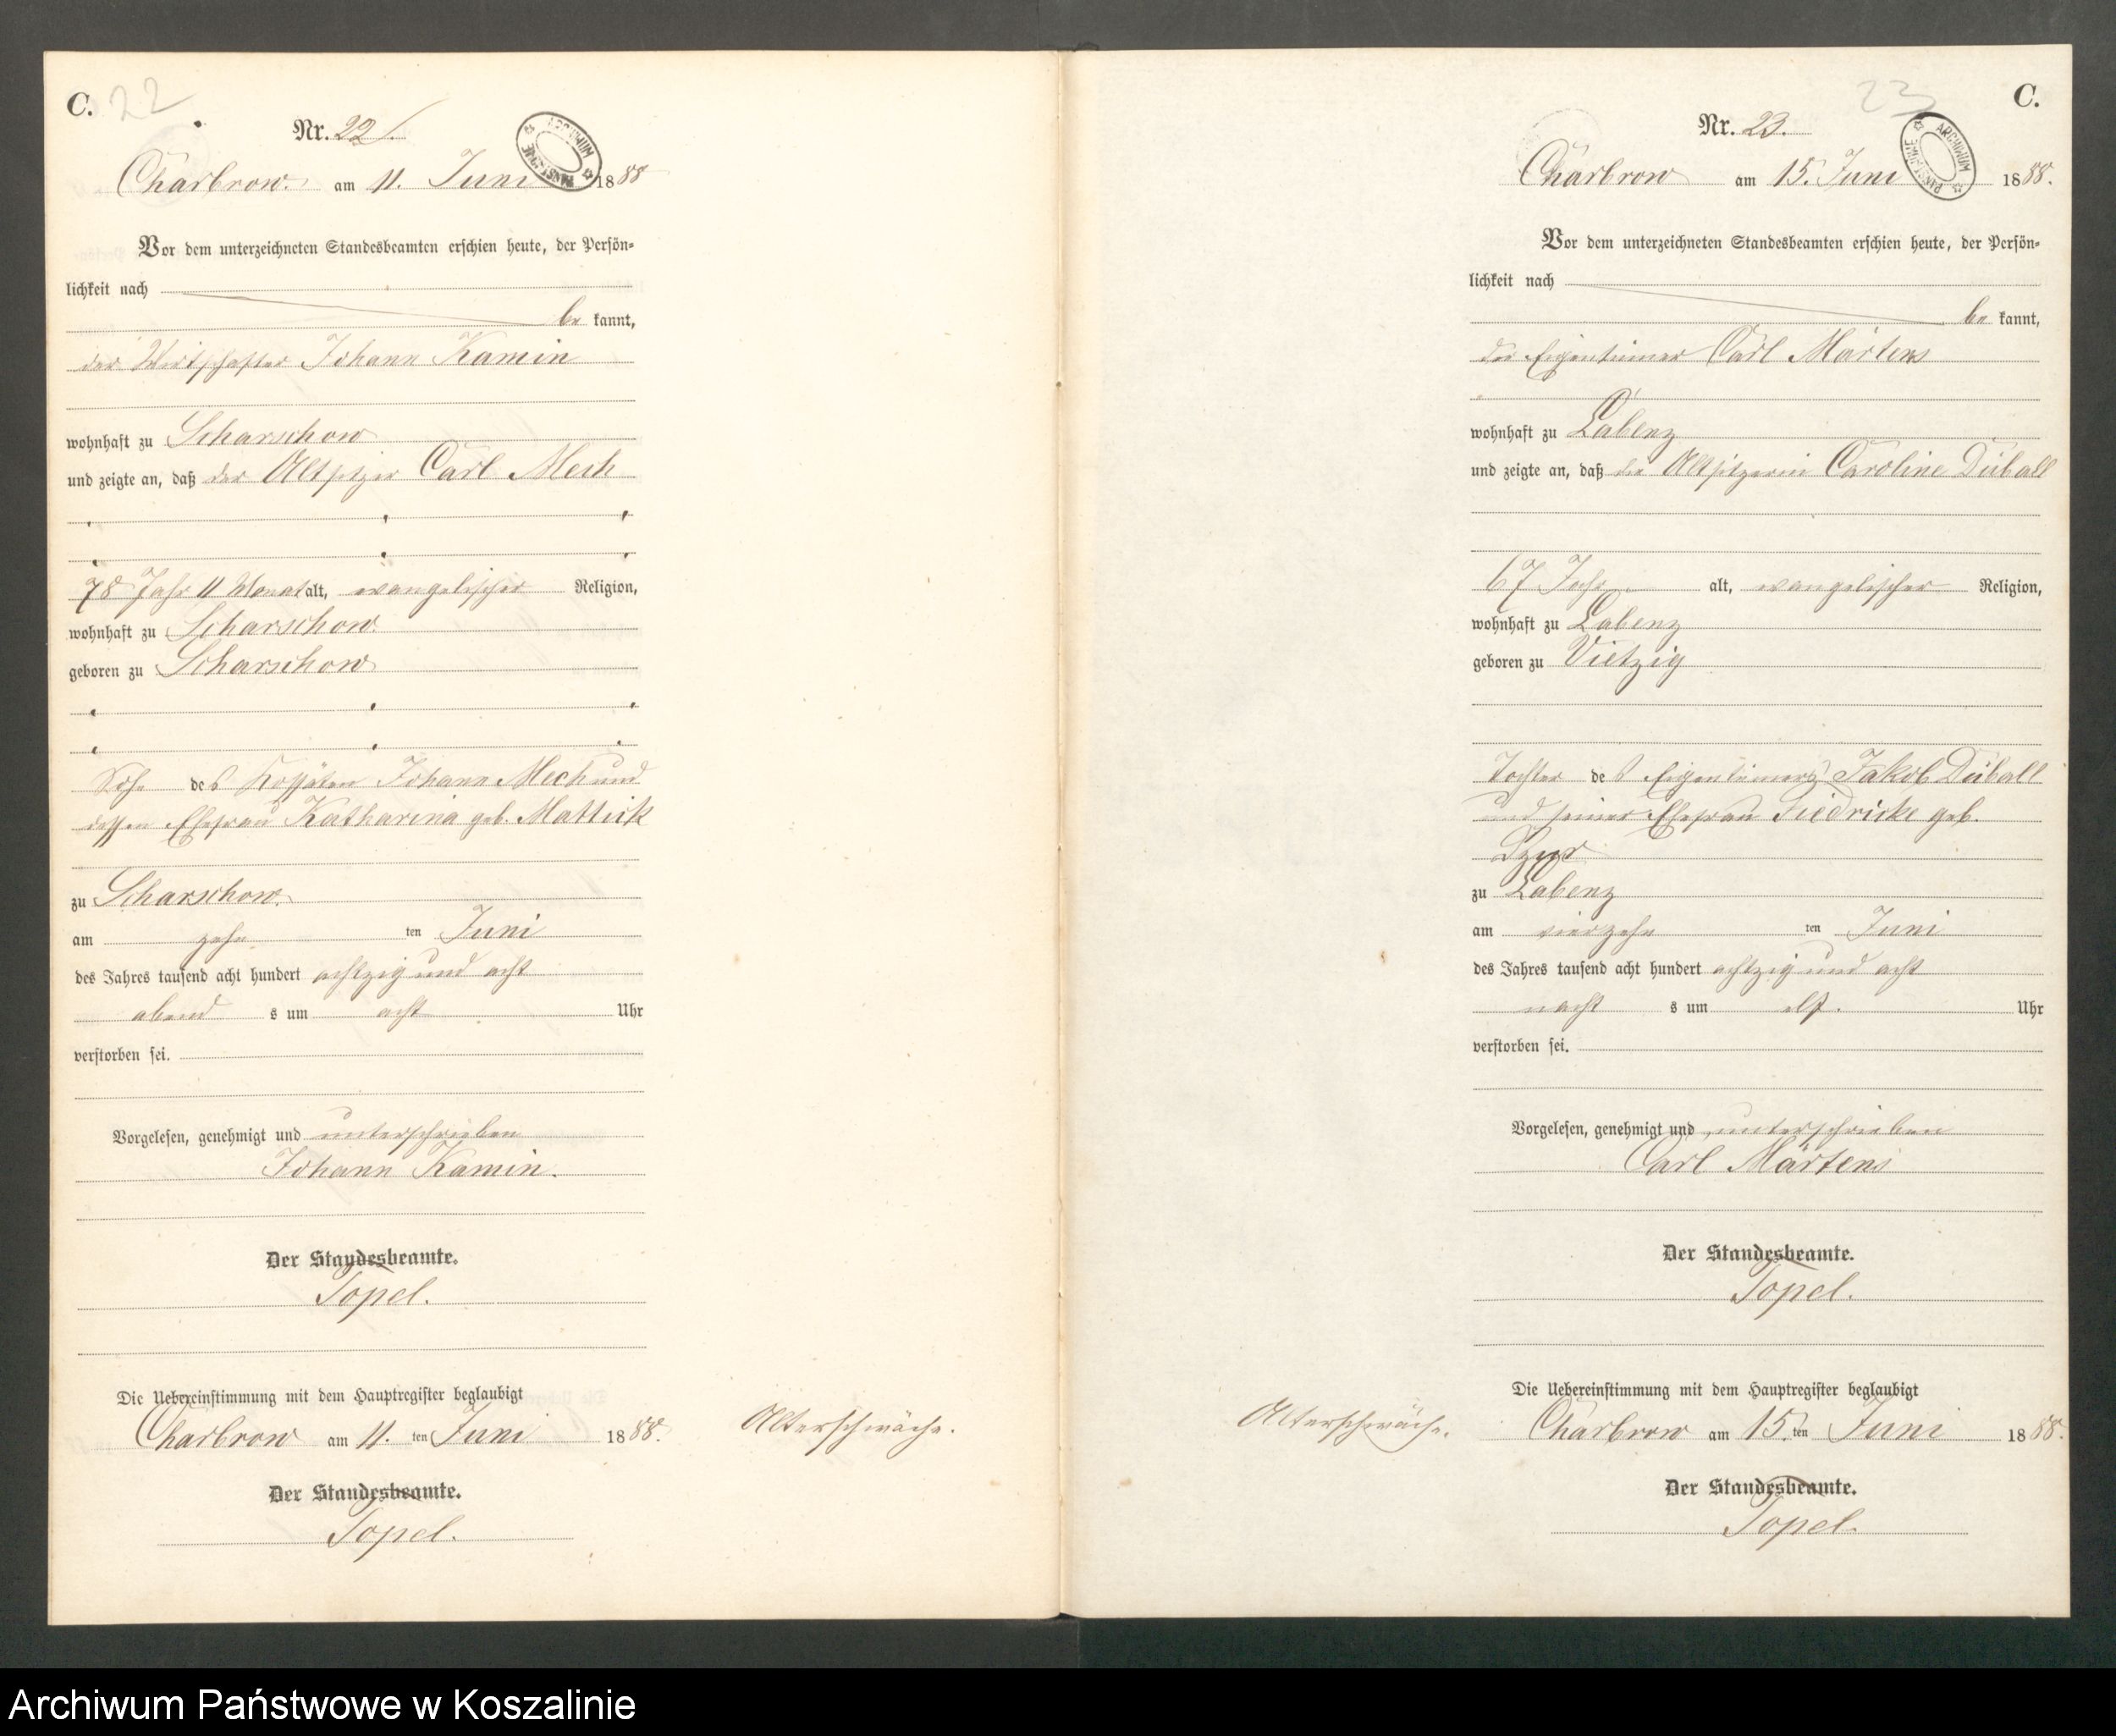 C. 22
Nr. 22.
ARCHIWUM PAŃSTWOWE
Charbrow. am 11. Juni 1888
Vor dem unterzeichneten Standesbeamten erschien heute, der Persön-
lichkeit nach
be kannt,
der Wirtschafter Johann Kamin
wohnhaft zu Scharschow
und zeigte an, daß der Altsitzer Carl Mech
78 Jahr 11 Monat alt, evangelischer Religion,
wohnhaft zu Scharschow.
geboren zu Scharschow
Sohn des Kossäten Johann Mech und
dessen Ehefrau Katharina geb. Mattick
zu Scharschow.
am zehn ten Juni
des Jahres tausend acht hundert achtzig und acht
abend s um acht Uhr
verstorben sei.
Vorgelesen, genehmigt und unterschrieben
Johann Kamin.
Der Standesbeamte.
Topel.
Die Uebereinstimmung mit dem Hauptregister beglaubigt
Charbrow am 11. ten Juni 1888.
Der Standesbeamte.
Topel.
Alterschwäche.
23 C.
Nr. 23.
ARCHIWUM PAŃSTWOWE
Charbrow am 15. Juni 1888.
Vor dem unterzeichneten Standesbeamten erschien heute, der Persön-
lichkeit nach
be kannt,
der Eigentümer Carl Märtens
wohnhaft zu Labenz
und zeigte an, daß die Altsitzerin Caroline Düball
67 Jahr alt, evangelischer Religion,
wohnhaft zu Labenz
geboren zu Vietzig
Tochter des Eigentümers Jakob Düball
und seiner Ehefrau Fiedricke geb.
zu Labenz
am vierzehn ten Juni
des Jahres tausend acht hundert achtzig und acht
nacht s um elf. Uhr
verstorben sei.
Vorgelesen, genehmigt und unterschrieben
Carl Märtens
Der Standesbeamte.
Topel.
Die Uebereinstimmung mit dem Hauptregister beglaubigt
Charbrow am 15. ten Juni 1888.
Der Standesbeamte.
Topel.
Alterschwäche.
Archiwum Państwowe w Koszalinie